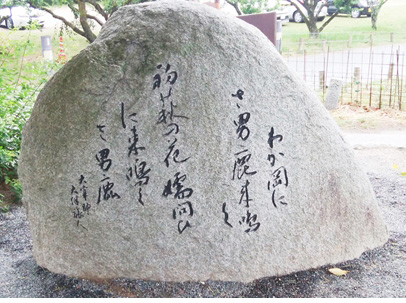 わが岡に
さ男鹿来鳴く
初萩の花嬬問ひ
に来鳴く
さ男鹿
大宰帥
大伴旅人